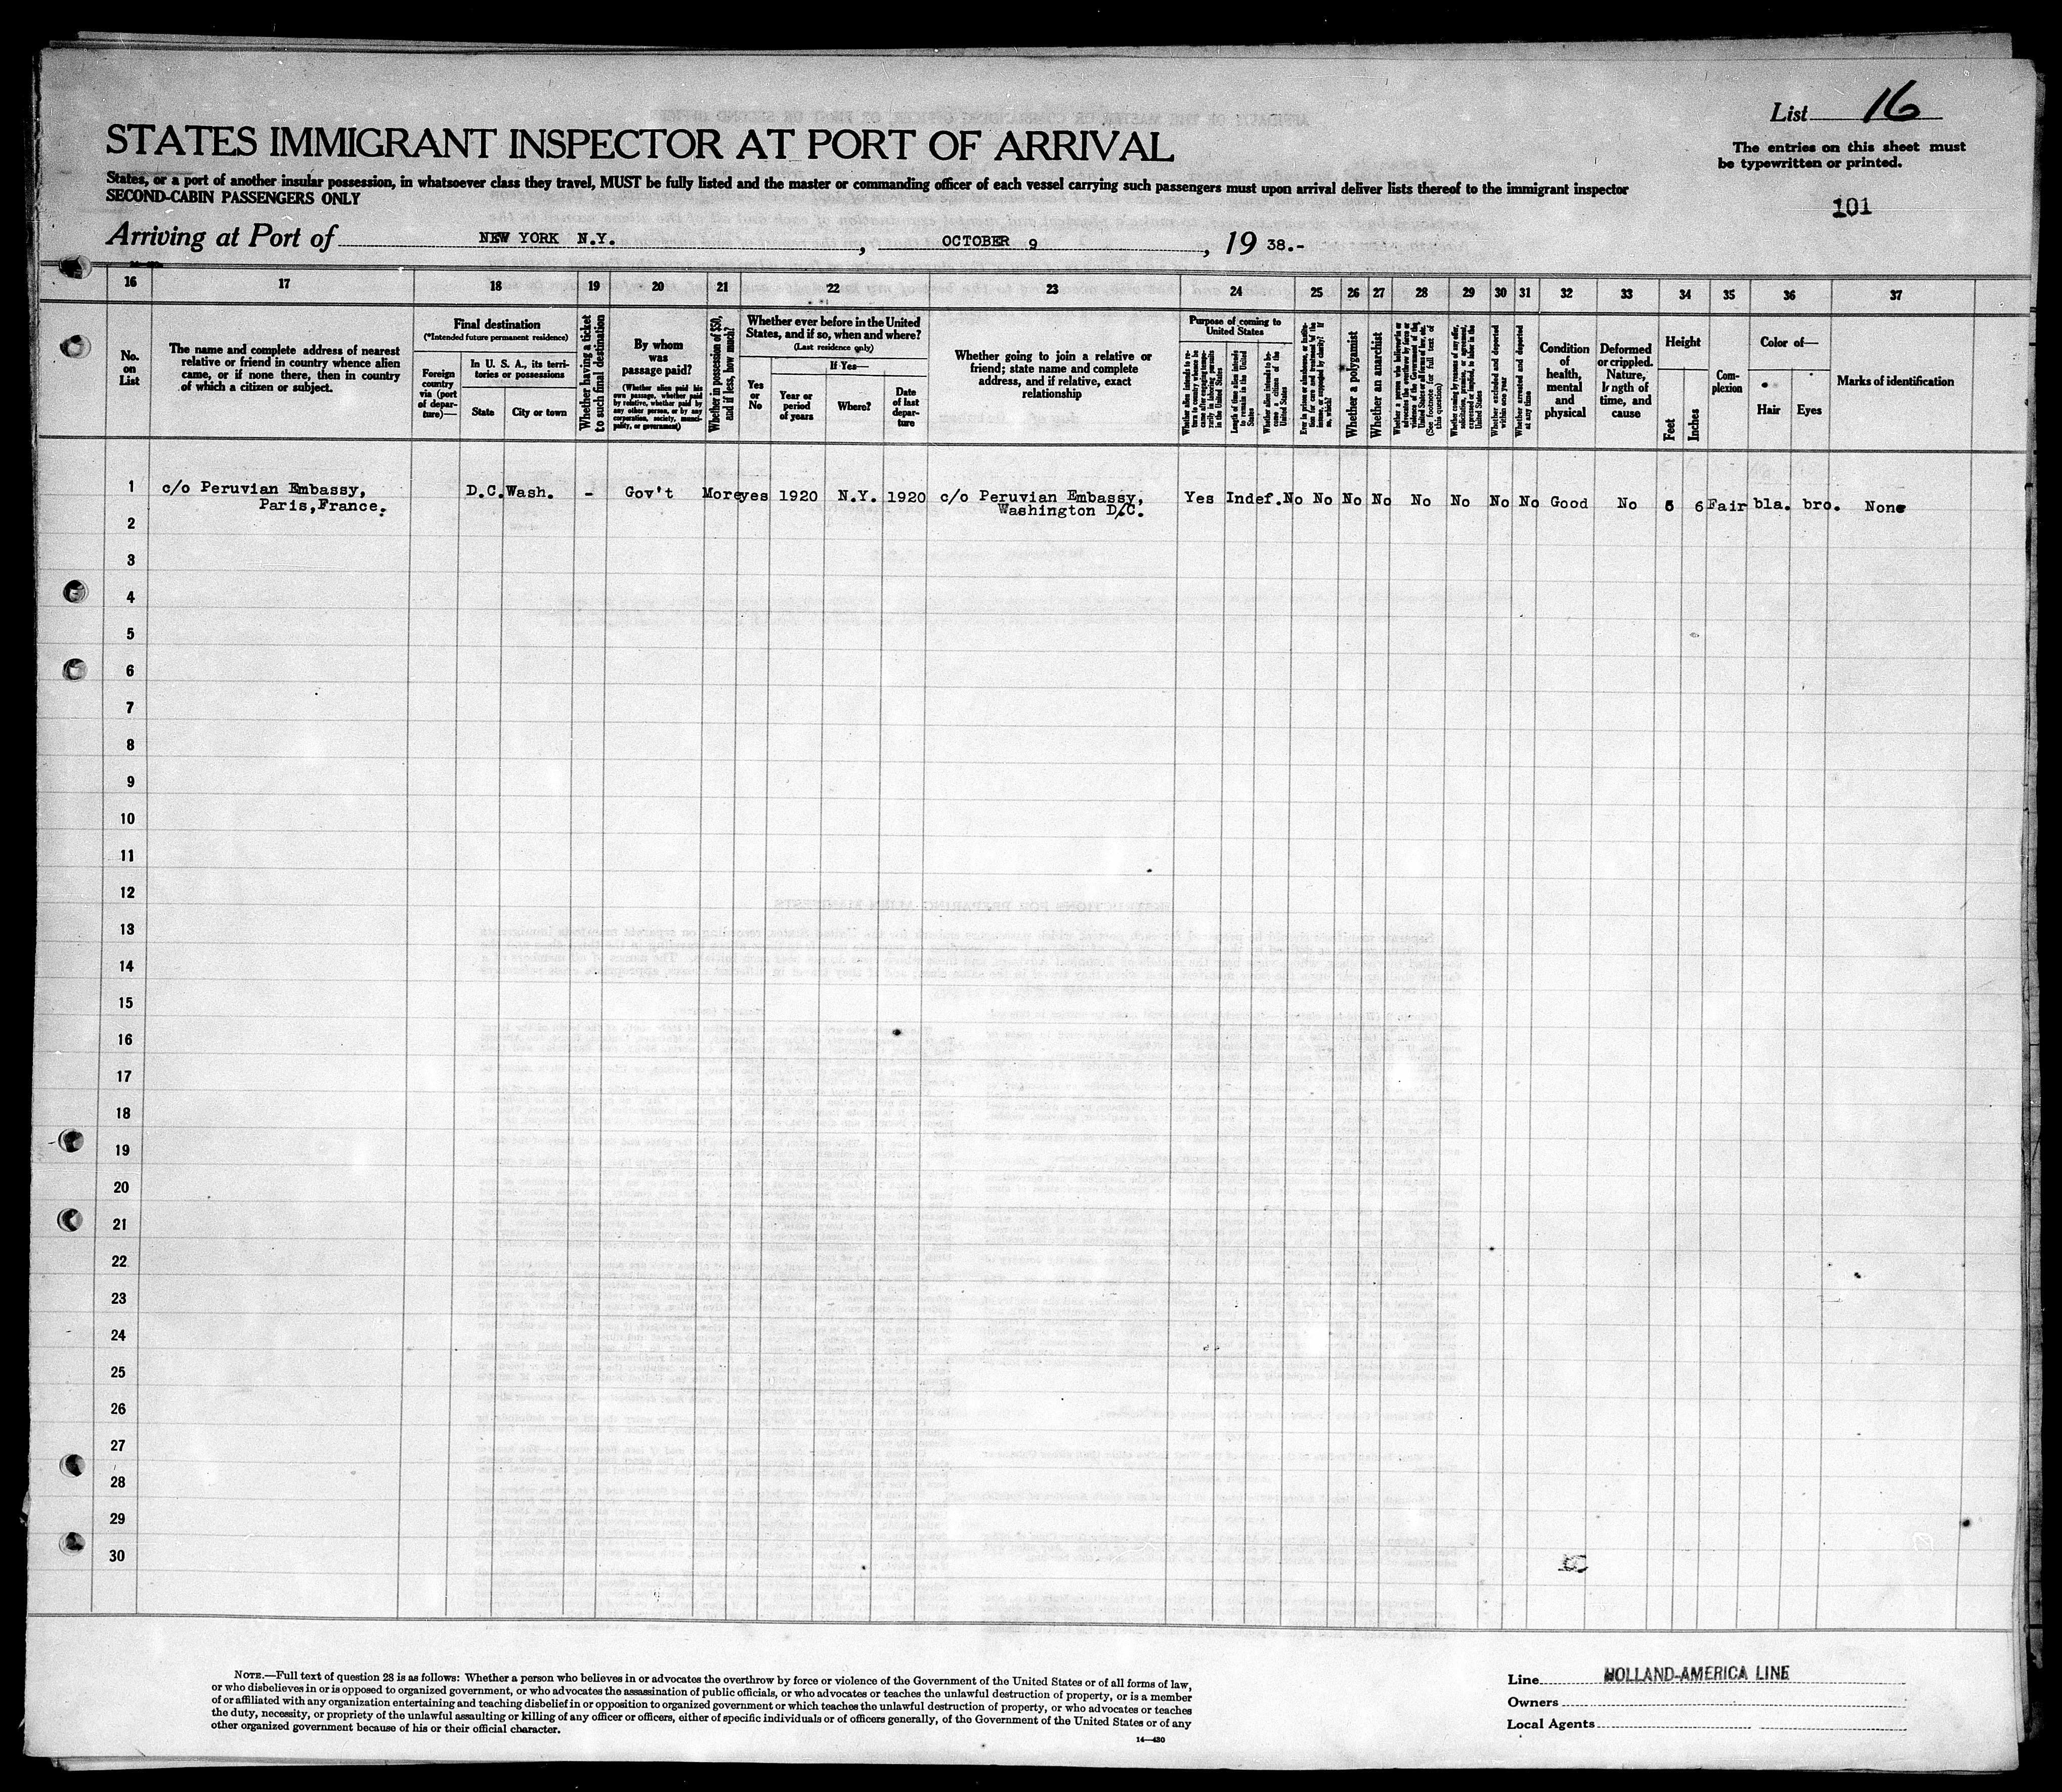 List 16
STATES IMMIGRANT INSPECTOR AT PORT OF ARRIVAL
The entries on this sheet must
be typewritten or printed.
States, or a port of another insular possession, in whatsoever class they travel, MUST be fully listed and the master or commanding officer of each vessel carrying such passengers must upon arrival deliver lists thereof to the immigrant inspector
SECOND-CABIN PASSENGERS ONLY
101
Arriving at Port of NEW YORK N.Y. , OCTOBER 9 , 19 38.-
16 17 18 19 20 21 22 23 24 25 26 27 28 29 30 31 32 33 34 35 36 37
No.
on
List
The name and complete address of nearest
relative or friend in country whence alien
came, or if none there, then in country
of which a citizen or subject.
Final destination
(*Intended future permanent residence)
Foreign
country
via (port
of depar-
ture)—
In U. S. A., its terri-
tories or possessions
State
City or town
Whether having a ticket
to such final destination
By whom
was
passage paid?
(Whether alien paid his
own passage, whether paid
by relative, whether paid by
any other person, or by any
corporation, society, munici-
pality, or government)
Whether in possession of $50,
and if less, how much?
Whether ever before in the United
States, and if so, when and where?
(Last residence only)
Yes
or
No
If Yes—
Year or
period
of years
Where?
Date
of last
depar-
ture
Whether going to join a relative or
friend; state name and complete
address, and if relative, exact
relationship
Purpose of coming to
United States
Length of time alien intends
to remain in the United
States
Whether alien intends to be-
come a citizen of the
United States
Whether a polygamist
Whether an anarchist
(See footnote for full text of
this question)
Whether excluded and deported
within one year
Whether arrested and deported
at any time
Condition
of
health,
mental
and
physical
Deformed
or crippled.
Nature,
length of
time, and
cause
Height
Feet
Inches
Com-
plexion
Color of—
Hair
Eyes
Marks of identification
1 c/o Peruvian Embassy, D.C. Wash. - Gov't More yes 1920 N.Y. 1920 c/o Peruvian Embassy, Yes Indef. No No No No No No No No Good No 5 6 Fair bla. bro. None
Paris,France. Washington D.C.
2
3
4
5
6
7
8
9
10
11
12
13
14
15
16
17
18
19
20
21
22
23
24
25
26
27
28
29
30
NOTE.—Full text of question 28 is as follows: Whether a person who believes in or advocates the overthrow by force or violence of the Government of the United States or of all forms of law,
or who disbelieves in or is opposed to organized government, or who advocates the assassination of public officials, or who advocates or teaches the unlawful destruction of property, or is a member
of or affiliated with any organization entertaining and teaching disbelief in or opposition to organized government or which teaches the unlawful destruction of property, or who advocates or teaches
the duty, necessity, or propriety of the unlawful assaulting or killing of any officer or officers, either of specific individuals or of officers generally, of the Government of the United States or of any
other organized government because of his or their official character.
14—430
Line HOLLAND-AMERICA LINE
Owners
Local Agents